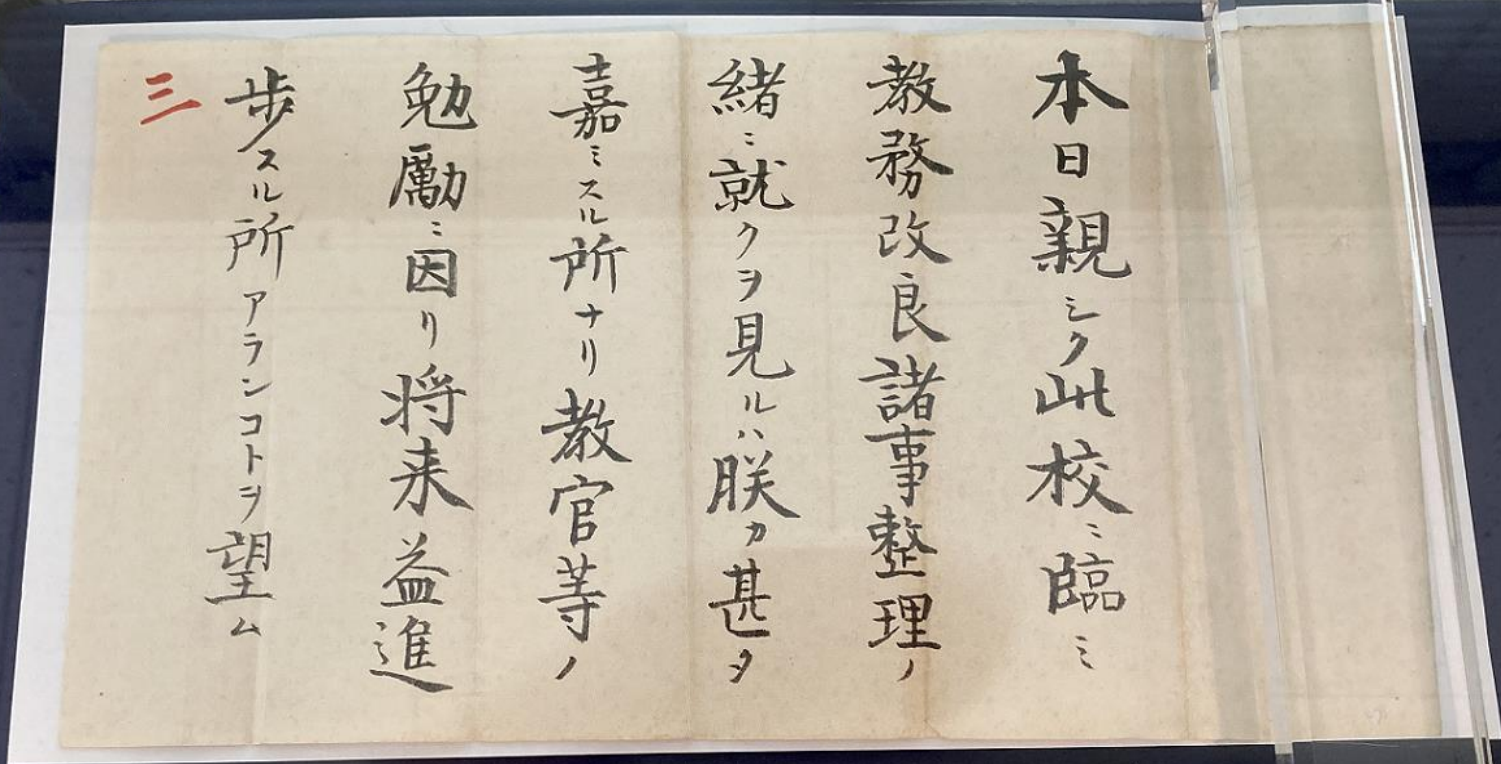 本日親シク此校ニ臨ミ
教務改良諸事整理ノ
緒ニ就クヲ見ルハ朕カ甚タ
嘉ミスル所ナリ教官等ノ
勉励ニ因リ将来益進
歩スル所アランコトヲ望ム
三